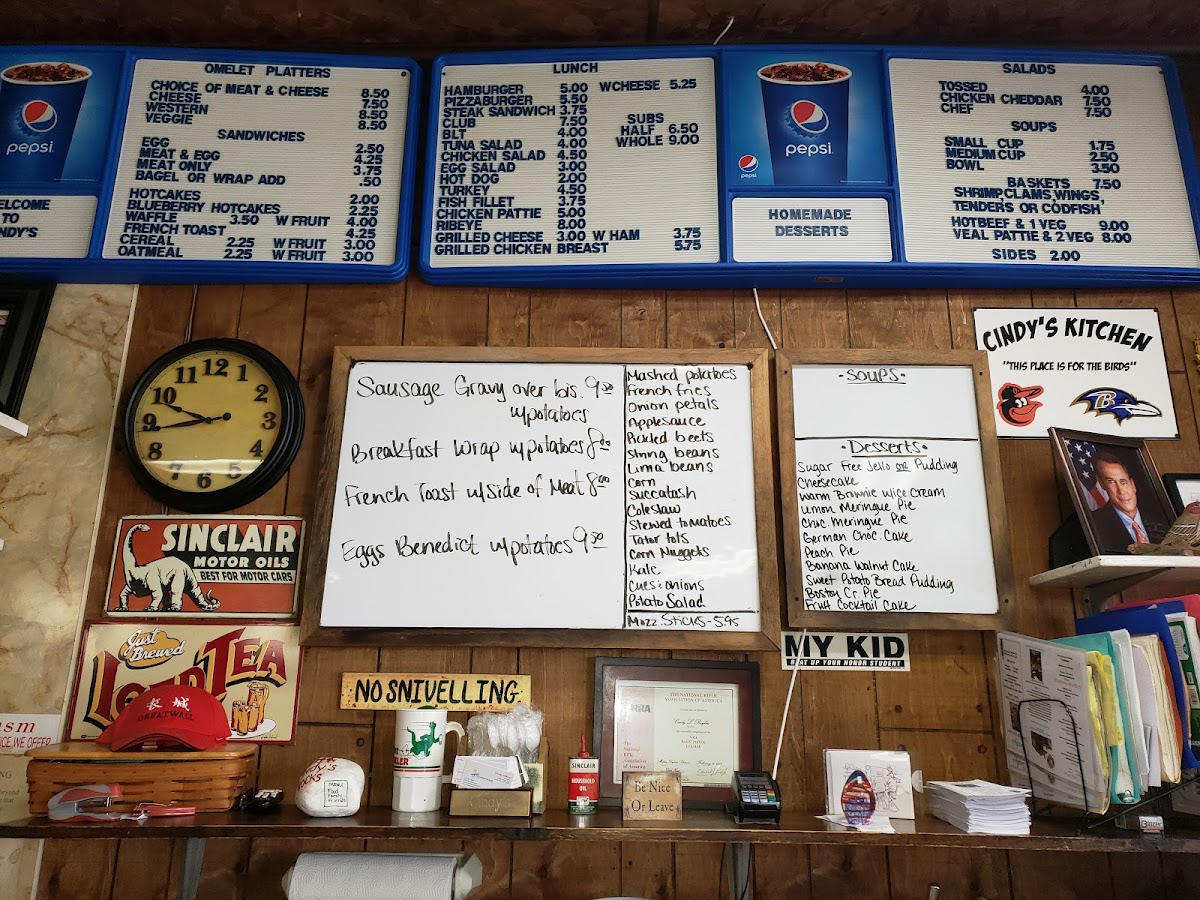 pepsi
ELCOME
TO
NDY'S
OMELET PLATTERS
CHOICE OF MEAT & CHEESE 8.50
CHEESE 7.50
WESTERN 8.50
VEGGIE 8.50
SANDWICHES
EGG 2.50
MEAT & EGG 4.25
MEAT ONLY 3.75
BAGEL OR WRAP ADD .50
HOTCAKES 2.00
BLUEBERRY HOTCAKES 2.25
WAFFLE 3.50 W FRUIT 4.00
FRENCH TOAST 4.25
CEREAL 2.25 W FRUIT 3.00
OATMEAL 2.25 W FRUIT 3.00
LUNCH
HAMBURGER 5.00 WCHEESE 5.25
PIZZABURGER 5.50
STEAK SANDWICH 3.75
CLUB 7.50
BLT 4.00
TUNA SALAD 4.00
CHICKEN SALAD 4.50
EGG SALAD 3.00
HOT DOG 3.00
TURKEY 4.50
FISH FILLET 3.75
CHICKEN PATTIE 5.00
RIBEYE 8.00
GRILLED CHEESE 3.00 W HAM 3.75
GRILLED CHICKEN BREAST 5.75
SUBS
HALF 6.50
WHOLE 9.00
pepsi
pepsi
HOMEMADE
DESSERTS
SALADS
TOSSED 4.00
CHICKEN CHEDDAR 7.50
CHEF 7.50
SOUPS
SMALL CUP 1.75
MEDIUM CUP 2.50
BOWL 3.50
BASKETS 7.50
SHRIMP,CLAMS,WINGS,
TENDERS OR CODFISH
HOTBEEF & 1 VEG 9.00
VEAL PATTIE & 2 VEG 8.00
SIDES 2.00
12
1
2
3
4
5
6
7
8
9
10
11
Sausage Gravy over bis. 9.50
w/potatoes
Breakfast Wrap w/potatoes 8.00
French Toast w/side of Meat 8.00
Eggs Benedict w/potatoes 9.50
Mashed potatoes
French fries
Onion petals
Applesauce
Pickled beets
String beans
Lima beans
Corn
Succatash
Coleslaw
Stewed tomatoes
Tator tots
Corn Nuggets
Kale
Cukes & onions
Potato Salad
Mozz. Sticks - 5.95
•SOUPS•
•Desserts•
Sugar Free Jello or Pudding
Cheesecake
Warm Brownie w/ice cream
Lemon Meringue Pie
Choc. Meringue Pie
German Choc. Cake
Peach Pie
Banana Walnut Cake
Sweet Potato Bread Pudding
Boston Cr. Pie
Fruit Cocktail Cake
CINDY'S KITCHEN
"THIS PLACE IS FOR THE BIRDS"
B
SINCLAIR
MOTOR OILS
BEST FOR MOTOR CARS
Just
Brewed
ICED TEA
GREATWALL
NO SNIVELLING
MY KID
BEAT UP YOUR HONOR STUDENT
THE NATIONAL RIFLE
ASSOCIATION OF AMERICA
SINCLAIR
HOUSEHOLD
OIL
Be Nice
Or Leave